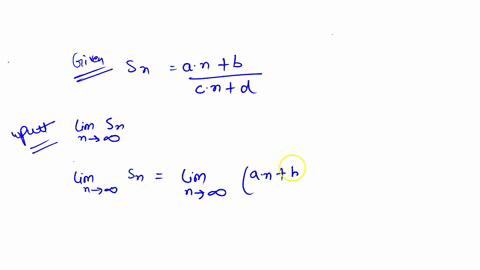 Given Sn = a·n + b / c·n + d
lim n→∞ Sn
lim n→∞ Sn = lim n→∞ (a·n + b